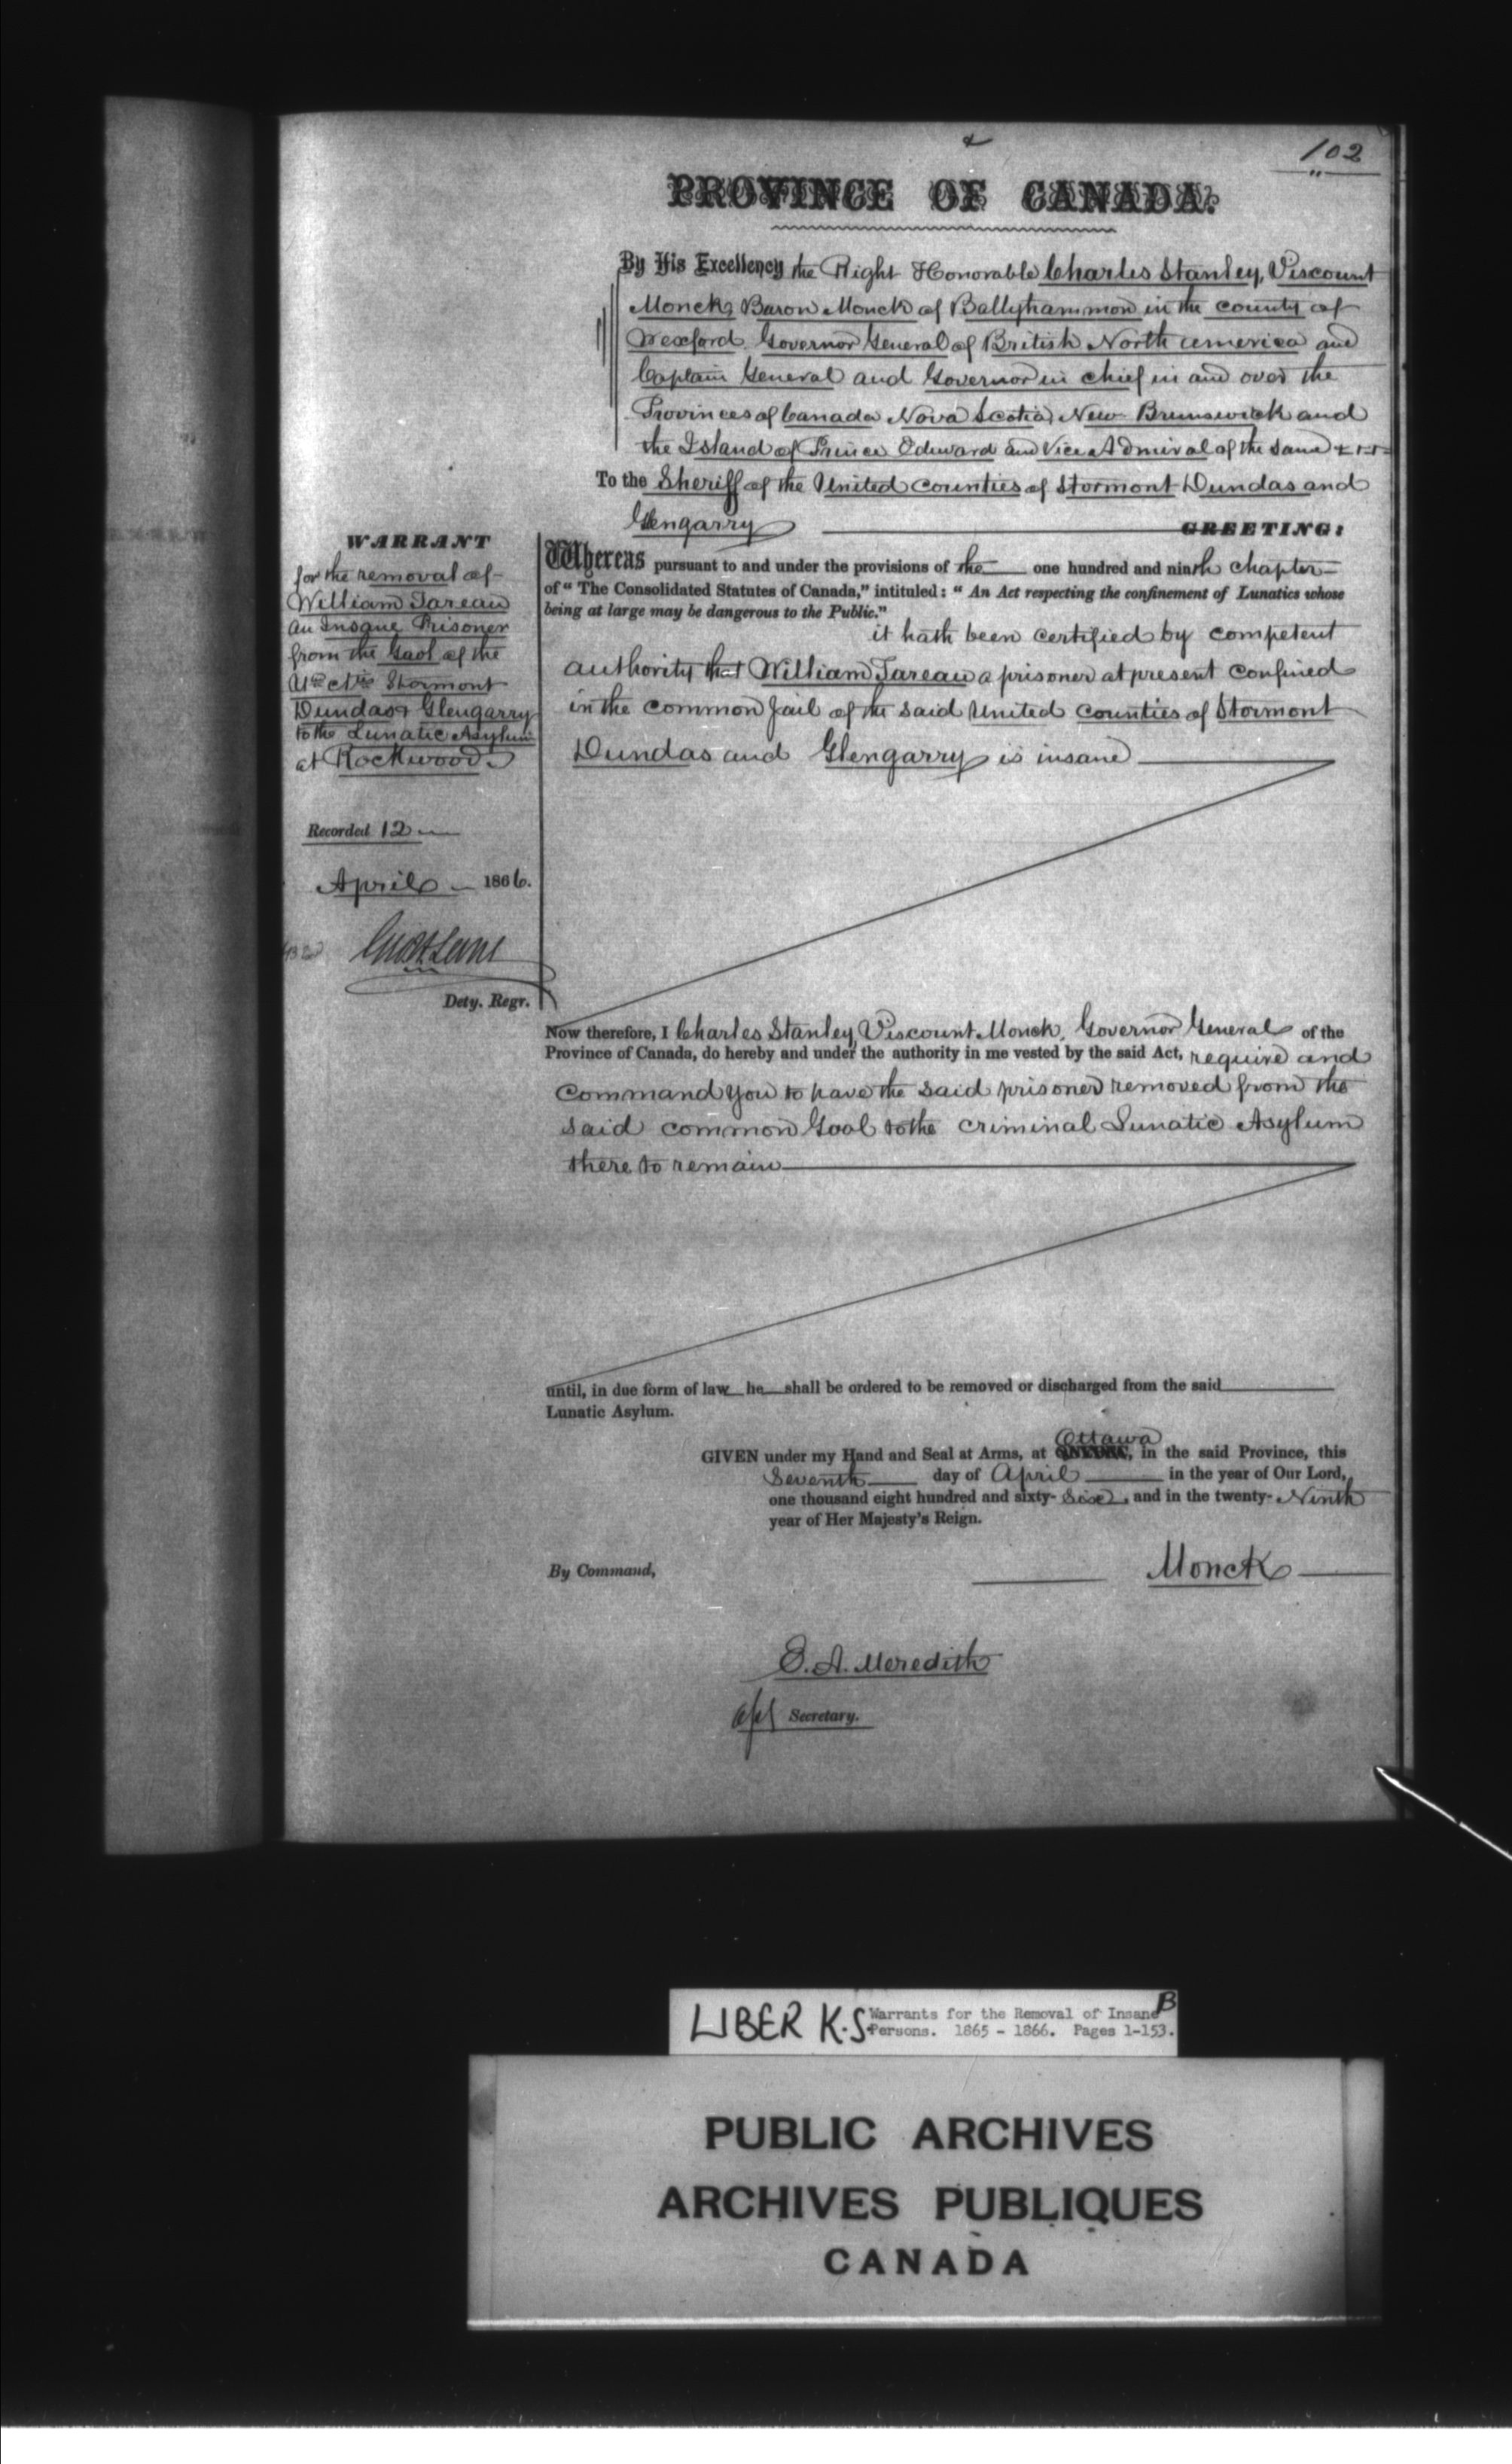 102
PROVINCE OF CANADA.
By His Excellency the Right Honorable Charles Stanley, Viscount
Monck, Baron Monck of Ballytrammon in the county of
Wexford. Governor General of British North america and
Captain General and Governor in chief in and over the
Provinces of Canada Nova Scotia, New Brunswick and
the Island of Prince Edward and Vice Admiral of the same
To the Sheriff of the United Counties of Stormont Dundas and
Glengarry GREETING:
WARRANT
for the removal of
William Tareau
an Insane Prisoner
from the Gaol of the
Stormont
Dundas & Glengarry
to the Lunatic Asylum
at Rockwood
Recorded 12
April 1866.
Dety. Regr.
Whereas pursuant to and under the provisions of the one hundred and ninth chapter
of “ The Consolidated Statutes of Canada,” intituled : “ An Act respecting the confinement of Lunatics whose
being at large may be dangerous to the Public.”
it hath been certified by competent
authority that William Tareau a prisoner at present confined
in the common Jail of the said United Counties of Stormont
Dundas and Glengarry is insane
Now therefore, I Charles Stanley, Viscount Monck, Governor General of the
Province of Canada, do hereby and under the authority in me vested by the said Act, require and
Command You to have the said prisoner removed from the
said common Goal to the criminal Lunatic Asylum
there to remain
until, in due form of law he shall be ordered to be removed or discharged from the said
Lunatic Asylum.
Ottawa
GIVEN under my Hand and Seal at Arms, at in the said Province, this
Seventh day of April in the year of Our Lord,
one thousand eight hundred and sixty- Six, and in the twenty- Ninth
year of Her Majesty's Reign.
By Command,
Monck
E. A. Meredith
Secretary.
LIBER K.S. Warrants for the Removal of Insane B
Persons. 1865 - 1866. Pages 1-153.
PUBLIC ARCHIVES
ARCHIVES PUBLIQUES
CANADA